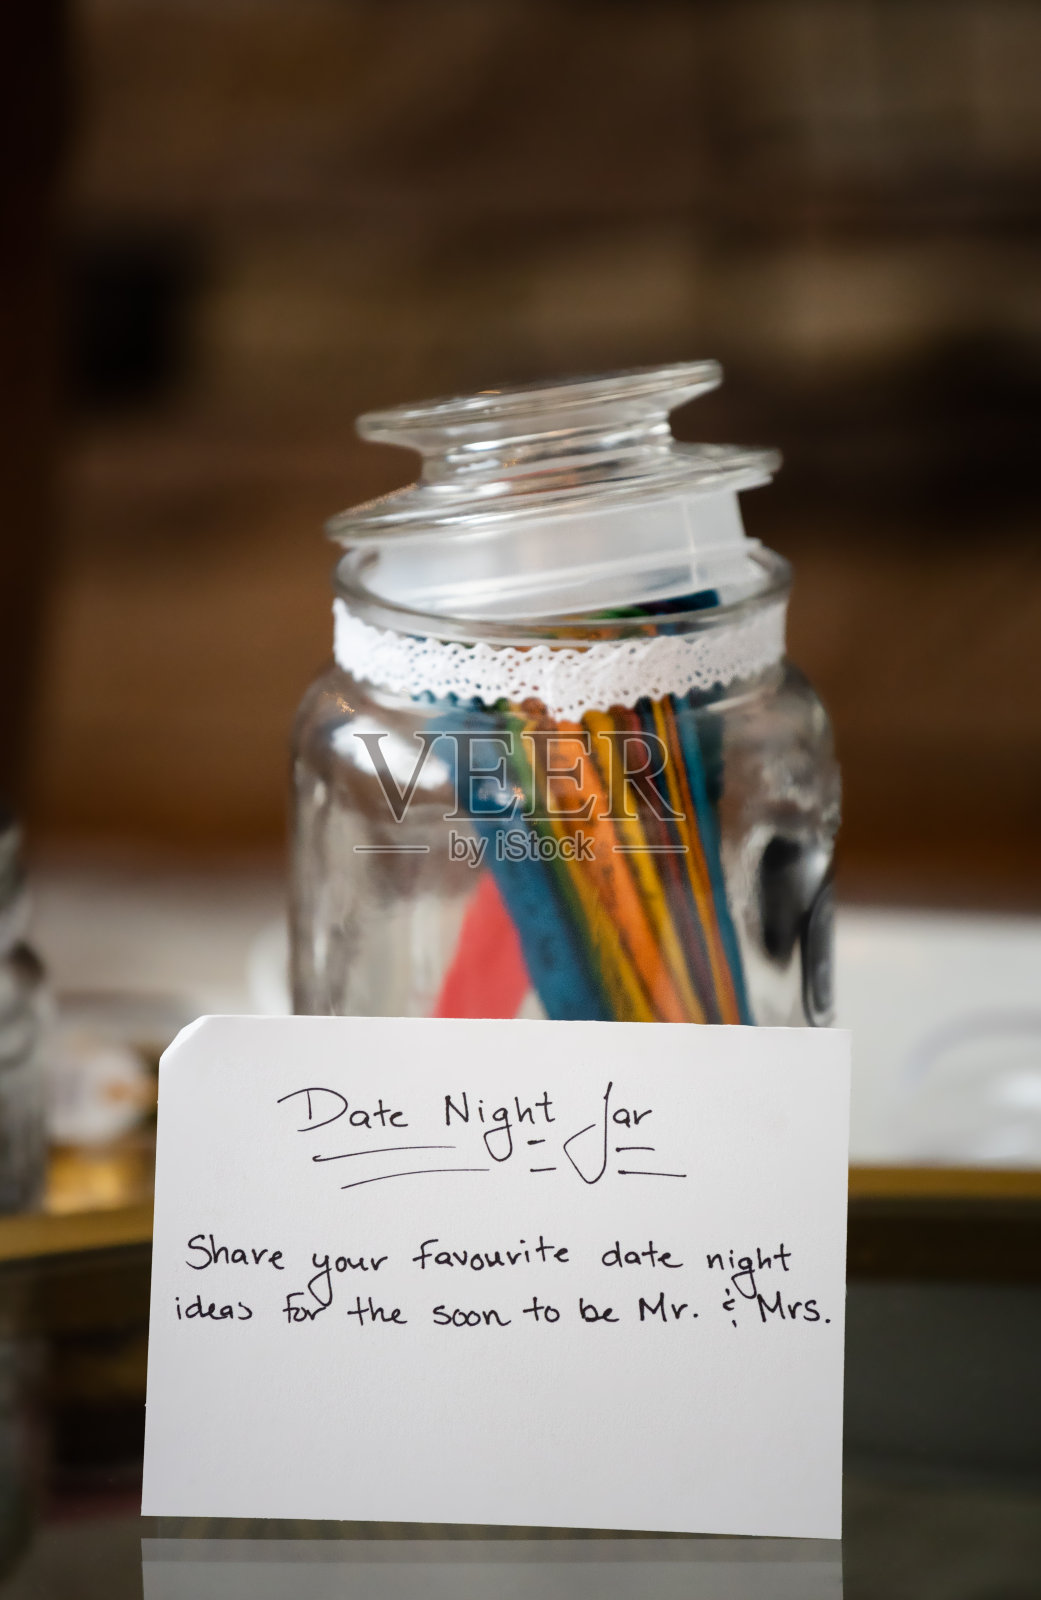 VEER
by iStock
Date Night Jar
Share your favourite date night
ideas for the soon to be Mr. & Mrs.